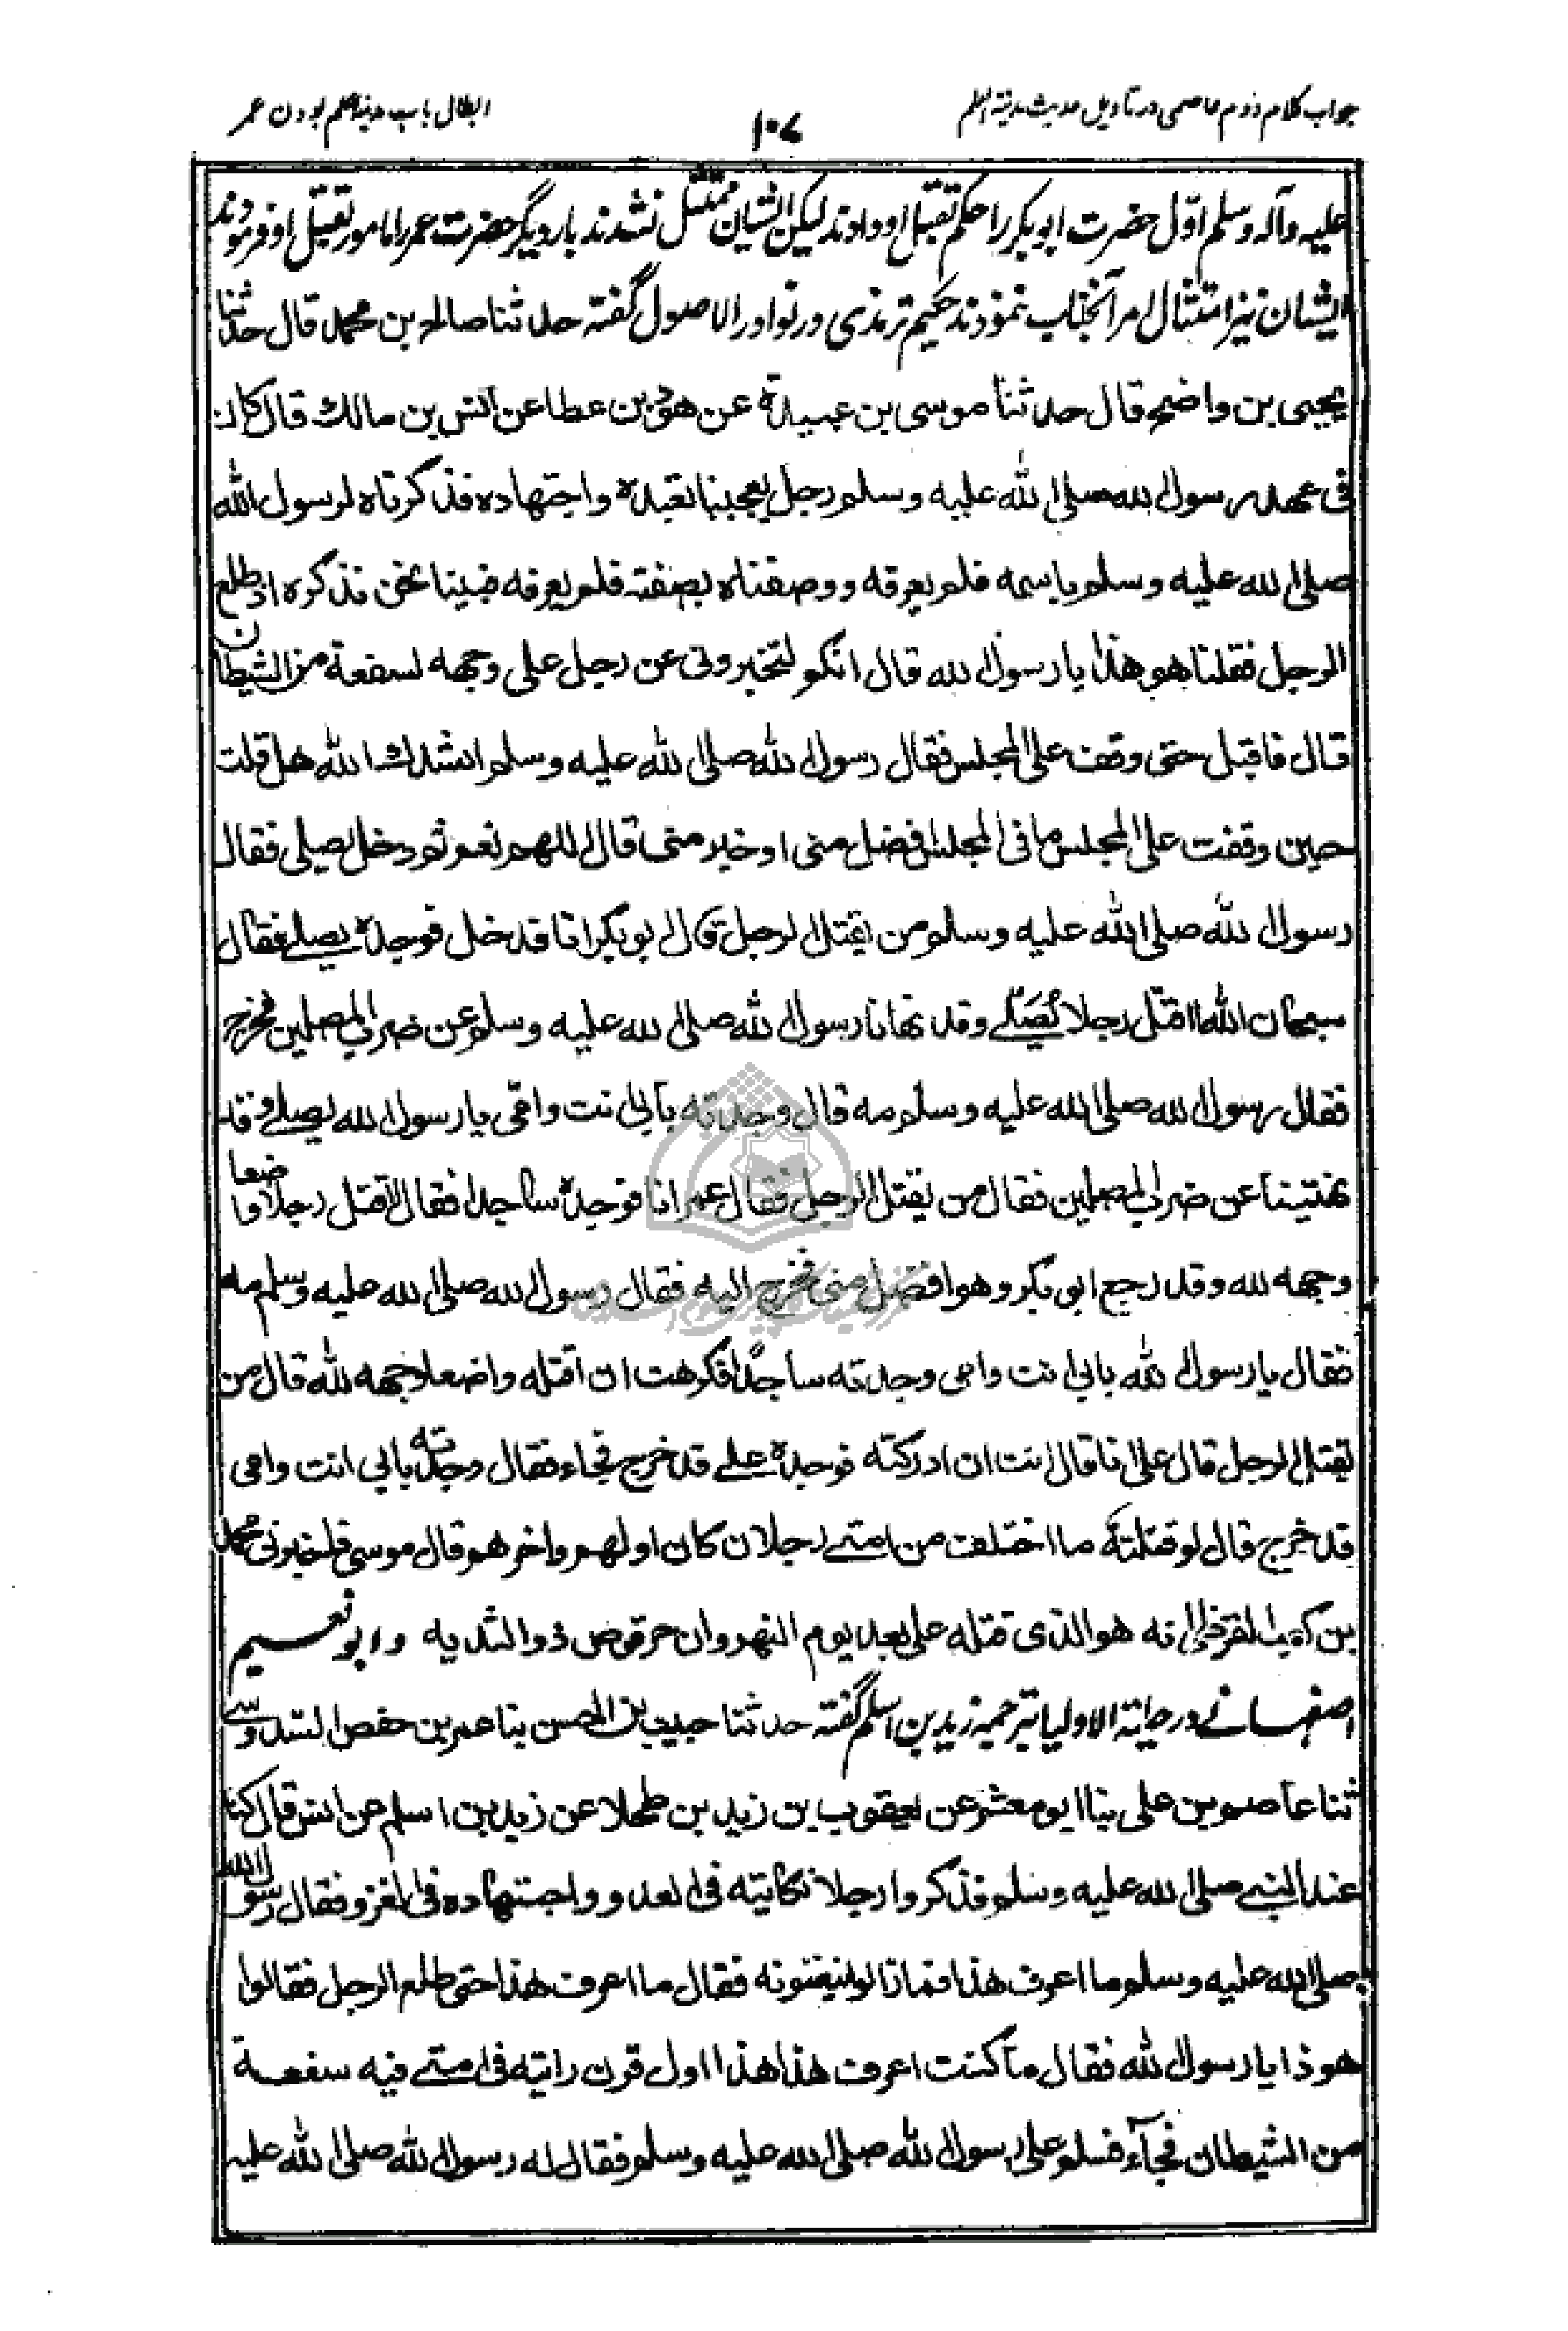 جواب کلام دوم عاصمی در تاویل حدیث مدینة العلم
۱۰۷
ابطال باب مدینة علم بودن عمر
علیه وآله وسلم اوّل حضرت ابوبکر را حکم تقتیل او دادند لیکن ایشان ممتثل نشدند بار دیگر حضرت عمر را مامور تقتیل او فرمودند
ایشان نیز امتثال امر آنجناب ننمودند حکیم ترمذی در نوادر الاصول گفته حدثنا صالح بن محمد قال حدثنا
یحیی بن واضح قال حدثنا موسی بن عبیدة عن هود بن عطا عن انس بن مالک قال کان
فی عهد رسول الله صلی الله علیه وسلم رجل یعجبنا تعبده واجتهاده فذکرناه لرسول الله
صلی الله علیه وسلم باسمه فلم یعرفه ووصفناه بصفته فلم یعرفه فبینا نحن نذکره اذ طلع
الرجل فقلنا هو هذا یا رسول الله قال انکم لتخبرونی عن رجل علی وجهه لسفعة من الشیطان
قال فاقبل حتی وقف علی المجلس فقال رسول الله صلی الله علیه وسلم انشدک الله هل قلت
حین وقفت علی المجلس ما فی المجلس افضل منی او خیر منی قال اللهم نعم ثم دخل یصلی فقال
رسول الله صلی الله علیه وسلم من یقتل الرجل قال ابو بکر انا فدخل فوجده یصلے فقال
سبحان الله اقتل رجلا یُصَلّے وقد نهانا رسول الله صلی الله علیه وسلم عن ضرب المصلین فخرج
فقال رسول الله صلی الله علیه وسلم مه قال وجدته بابی انت وامّی یا رسول الله یصلے وقد
نهیتنا عن ضرب المصلین فقال من یقتل الرجل فقال عمر انا فوجده ساجدا فقال اقتل رجلا واضعا
وجهه لله وقد رجع ابو بکر وهو افضل منی فخرج الیه فقال رسول الله صلی الله علیه وسلم مه
فقال یا رسول الله بابی انت وامی وجدته ساجدًا فکرهت ان اقتله واضعا وجهه لله قال من
یقتل الرجل قال علی انا قال انت ان ادرکته فوجده علے قد خرج فجاء فقال وجدته بابی انت وامی
قد خرج قال لو قتلته ما اختلف من امتے رجلان کان اولهم واخرهم قال موسی فاخبرنی محمد
بن کعب القرظی انه هو الذی قتله علی بعد یوم النهروان حرقوص ذو الثدیه وابو نعیم
اصفهانے در حلیة الاولیا بترجمه زید بن اسلم گفته حدثنا حبیب بن الحسن بنا عمر بن حفص السدوسے
ثنا عاصم بن علی بنا ابو معشر عن یعقوب بن زید بن طحلا عن زید بن اسلم عن انس قال کنا
عند النبے صلی الله علیه وسلم فذکروا رجلا نکایته فی العدو واجتهاده فی الغزو فقال رسول الله
صلی الله علیه وسلم ما اعرف هذا فما زالوا ینعتونه فقال ما اعرف هذا حتی طلع الرجل فقالوا
هو ذا یا رسول الله فقال ما کنت اعرف هذا هذا اول قرن رایته فی امتے فیه سفعة
من الشیطان فجآء فسلم علی رسول الله صلی الله علیه وسلم فقال له رسول الله صلی الله علیه